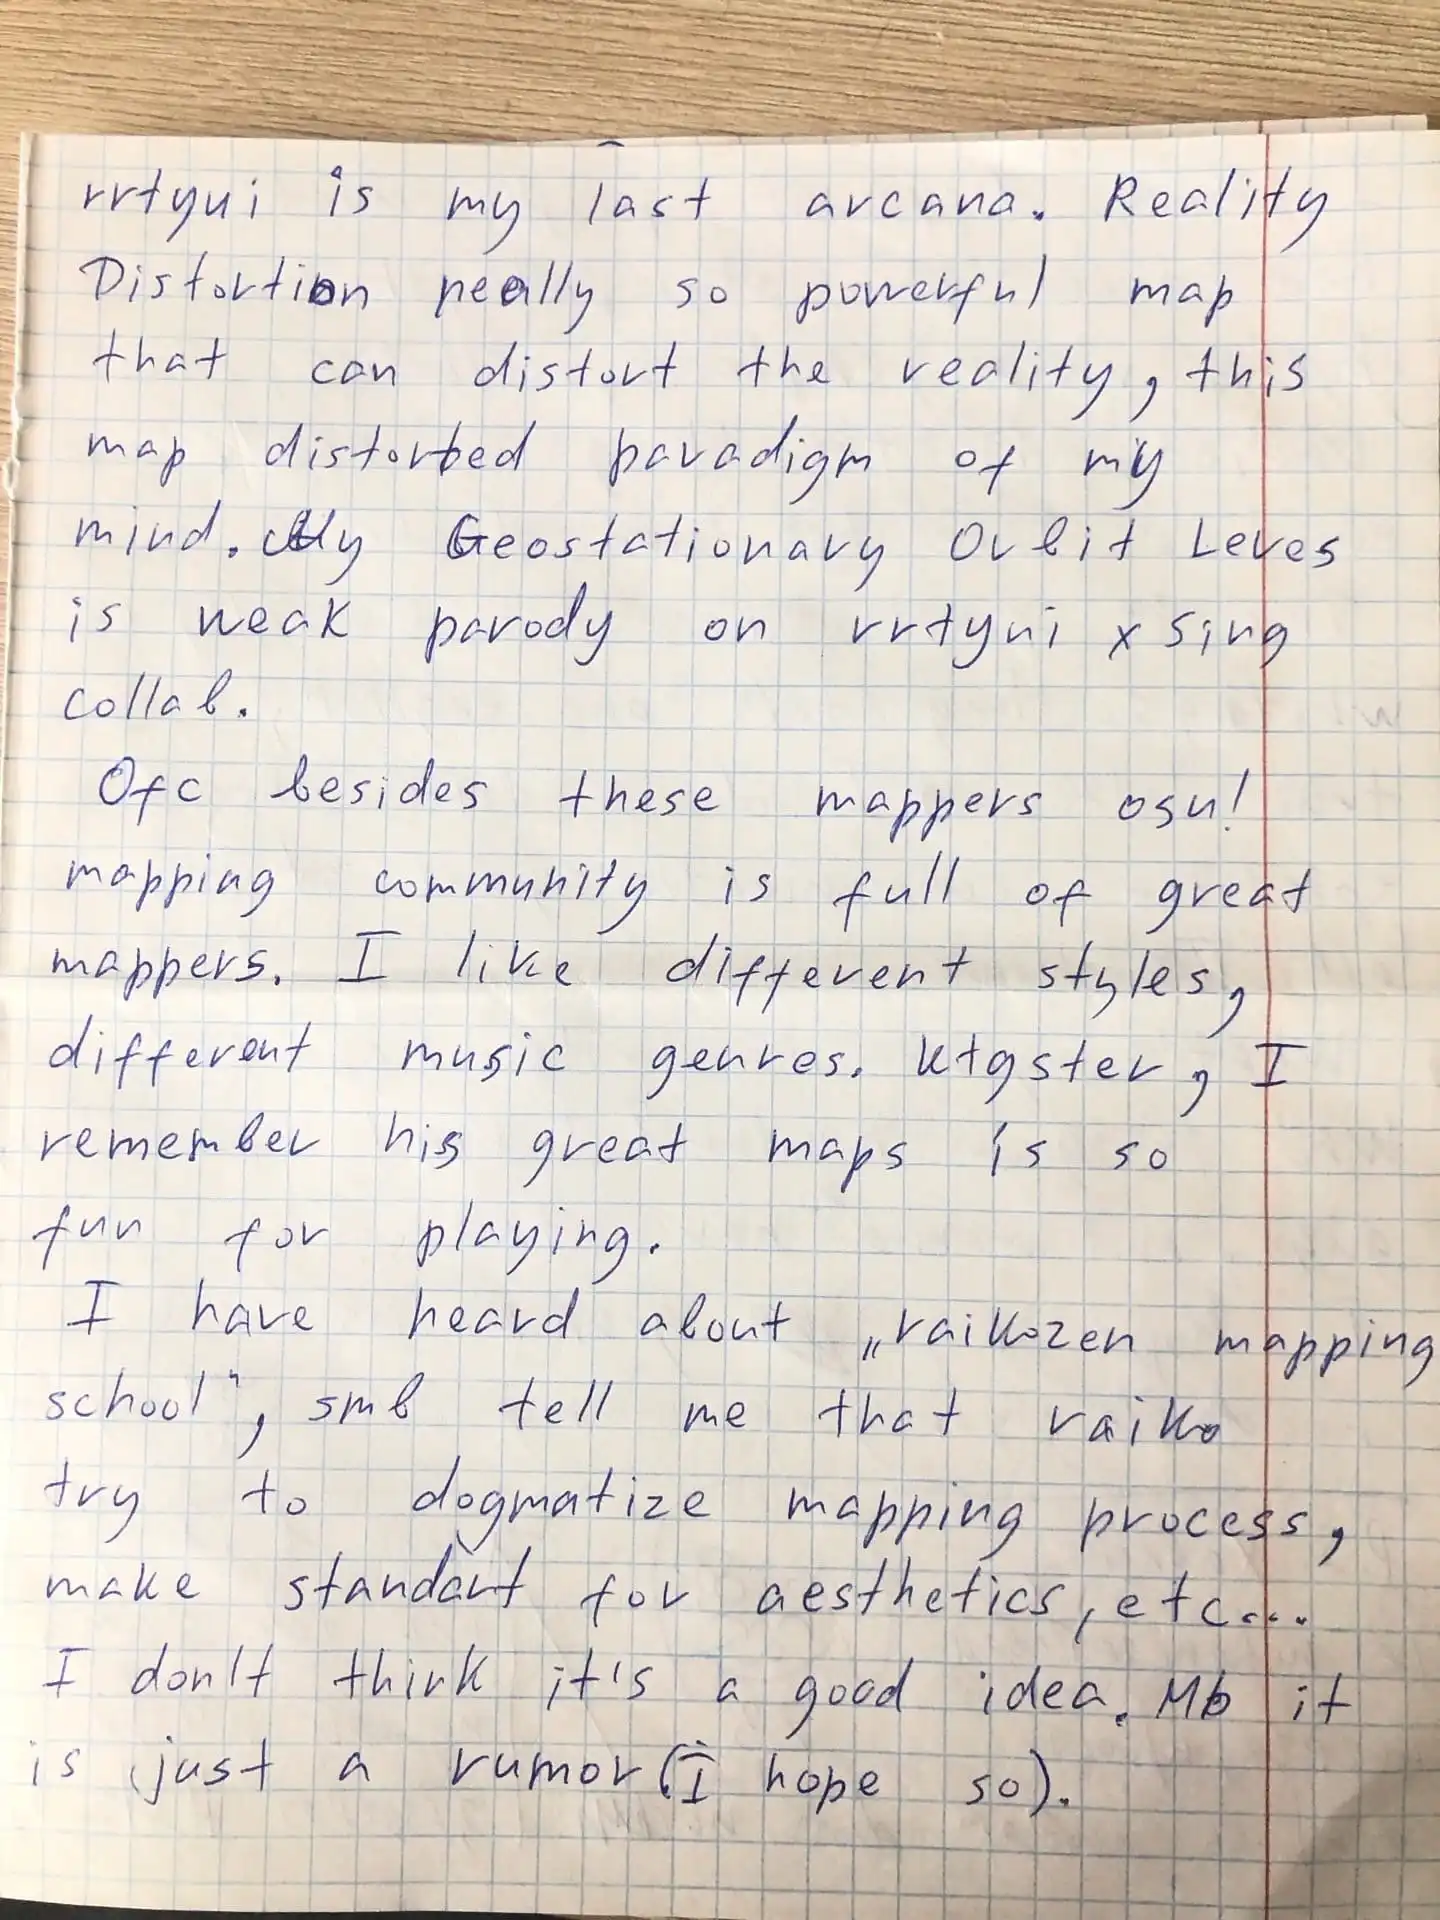 rrtyui is my last arcana. Reality
Distortion really so powerful map
that can distort the reality, this
map distorted paradigm of my
mind. My Geostationary Orbit Leves
is weak parody on rrtyui x Sing
collab.
Ofc besides these mappers osu!
mapping community is full of great
mappers. I like different styles,
different music genres. ktgster, I
remember his great maps is so
fun for playing.
I have heard about „raikozen mapping
school", smb tell me that raiko
try to dogmatize mapping process,
make standart for aesthetics, etc...
I don't think it's a good idea. Mb it
is just a rumor (I hope so).